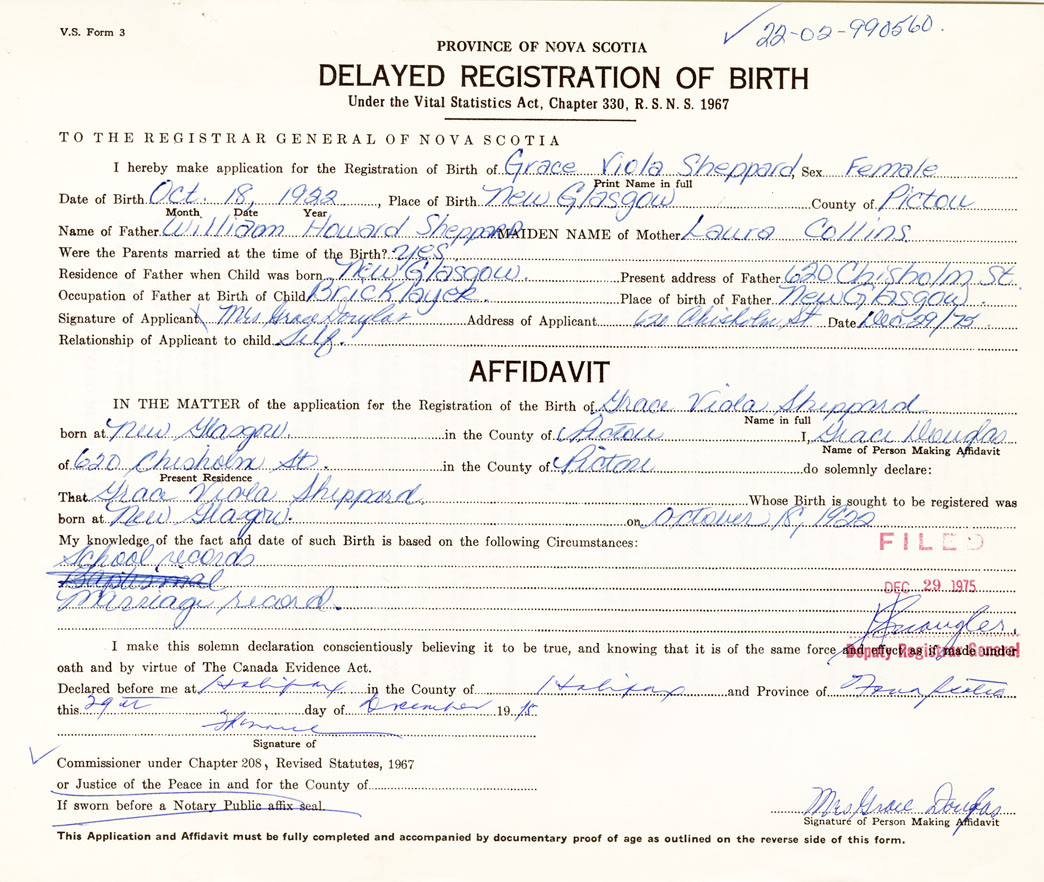 V.S. Form 3
✓ 22-02-990560.
PROVINCE OF NOVA SCOTIA
DELAYED REGISTRATION OF BIRTH
Under the Vital Statistics Act, Chapter 330, R. S. N. S. 1967
TO THE REGISTRAR GENERAL OF NOVA SCOTIA
I hereby make application for the Registration of Birth of Grace Viola Sheppard, Sex Female
Print Name in full
Date of Birth Oct. 18, 1922, Place of Birth New Glasgow County of Pictou
Month Date Year
Name of Father William Howard Sheppard MAIDEN NAME of Mother Laura Collins
Were the Parents married at the time of the Birth? yes
Residence of Father when Child was born New Glasgow. Present address of Father 620 Chisholm St.
Occupation of Father at Birth of Child Bricklayer. Place of birth of Father New Glasgow.
Signature of Applicant Mrs Grace Douglas Address of Applicant 620 Chisholm St Date Dec 29/75
Relationship of Applicant to child Self.
AFFIDAVIT
IN THE MATTER of the application for the Registration of the Birth of Grace Viola Sheppard
Name in full
born at New Glasgow. in the County of Pictou I, Grace Douglas
Name of Person Making Affidavit
of 620 Chisholm St. in the County of Pictou do solemnly declare:
Present Residence
That Grace Viola Sheppard. Whose Birth is sought to be registered was
born at New Glagow. on October 18, 1922
My knowledge of the fact and date of such Birth is based on the following Circumstances:
FILED
School records
Baptismal
DEC 29 1975
Marriage record.
I make this solemn declaration conscientiously believing it to be true, and knowing that it is of the same force and effect as if made under
Deputy Registrar General
oath and by virtue of The Canada Evidence Act.
Declared before me at Halifax in the County of Halifax and Province of Nova Scotia
this 29th day of December 1975
Signature of
✓ Commissioner under Chapter 208, Revised Statutes, 1967
or Justice of the Peace in and for the County of
If sworn before a Notary Public affix seal.
Mrs Grace Douglas
Signature of Person Making Affidavit
This Application and Affidavit must be fully completed and accompanied by documentary proof of age as outlined on the reverse side of this form.